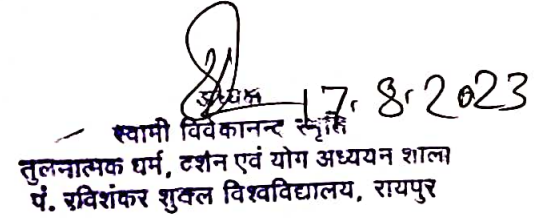 अध्यक्ष
17.8.2023
स्वामी विवेकानन्द स्मृति
तुलनात्मक धर्म, दर्शन एवं योग अध्ययन शाला
पं. रविशंकर शुक्ल विश्वविद्यालय, रायपुर